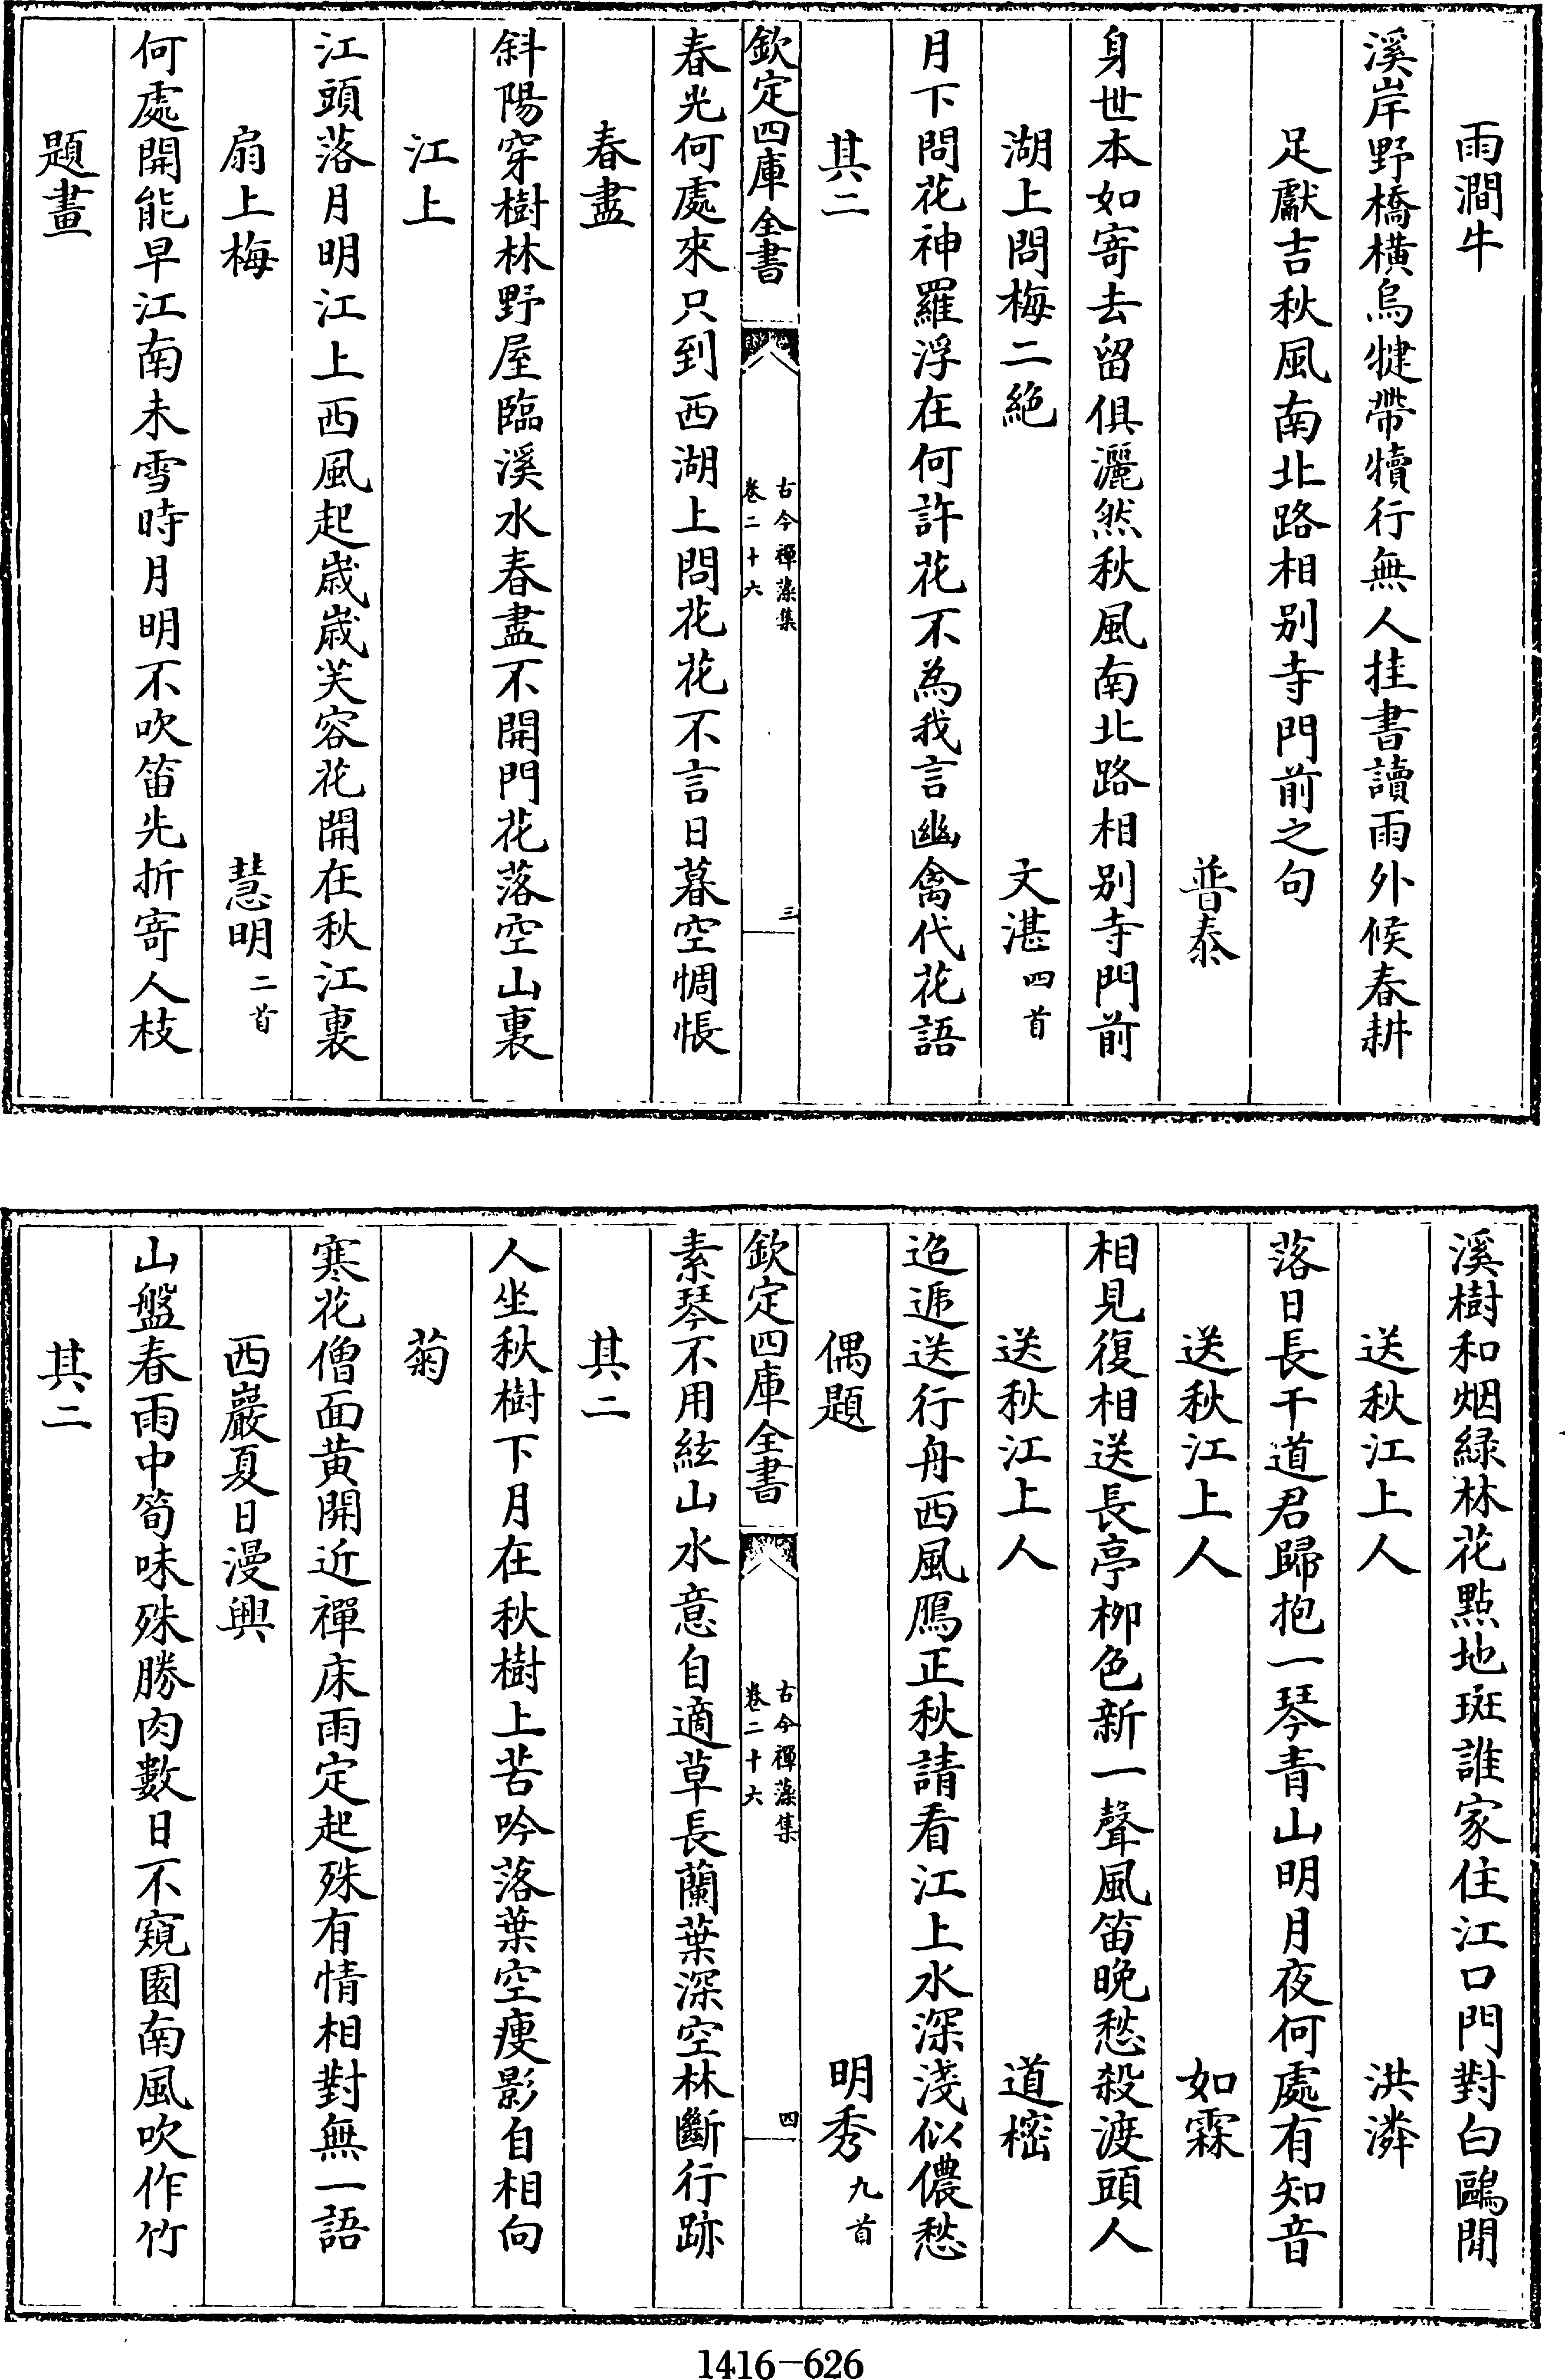 雨澗牛
溪岸野橋橫烏犍帶犢行無人挂書讀雨外候春耕
足獻吉秋風南北路相别寺門前之句
普泰
身世本如寄去留俱灑然秋風南北路相别寺門前
湖上問梅二絶 文湛四首
月下問花神羅浮在何許花不為我言幽禽代花語
其二
欽定四庫全書 古今禪藻集 卷二十六 三
春光何處來只到西湖上問花花不言日暮空惆悵
春盡
斜陽穿樹林野屋臨溪水春盡不開門花落空山裏
江上
江頭落月明江上西風起歲歲芙容花開在秋江裏
扇上梅 慧明二首
何處開能早江南未雪時月明不吹笛先折寄人枝
題畫
溪樹和烟綠林花點地斑誰家住江口門對白鷗閒
送秋江上人 洪潾
落日長干道君歸抱一琴青山明月夜何處有知音
送秋江上人 如霖
相見復相送長亭栁色新一聲風笛晚愁殺渡頭人
送秋江上人 道樒
迢遞送行舟西風鴈正秋請看江上水深淺似儂愁
偶題 明秀九首
欽定四庫全書 古今禪藻集 卷二十六 四
素琴不用絃山水意自適草長蘭葉深空林斷行跡
其二
人坐秋樹下月在秋樹上苦吟落葉空瘦影自相向
菊
寒花僧面黄開近禪床雨定起殊有情相對無一語
西巖夏日漫興
山盤春雨中筍味殊勝肉數日不窺園南風吹作竹
其二
1416-626